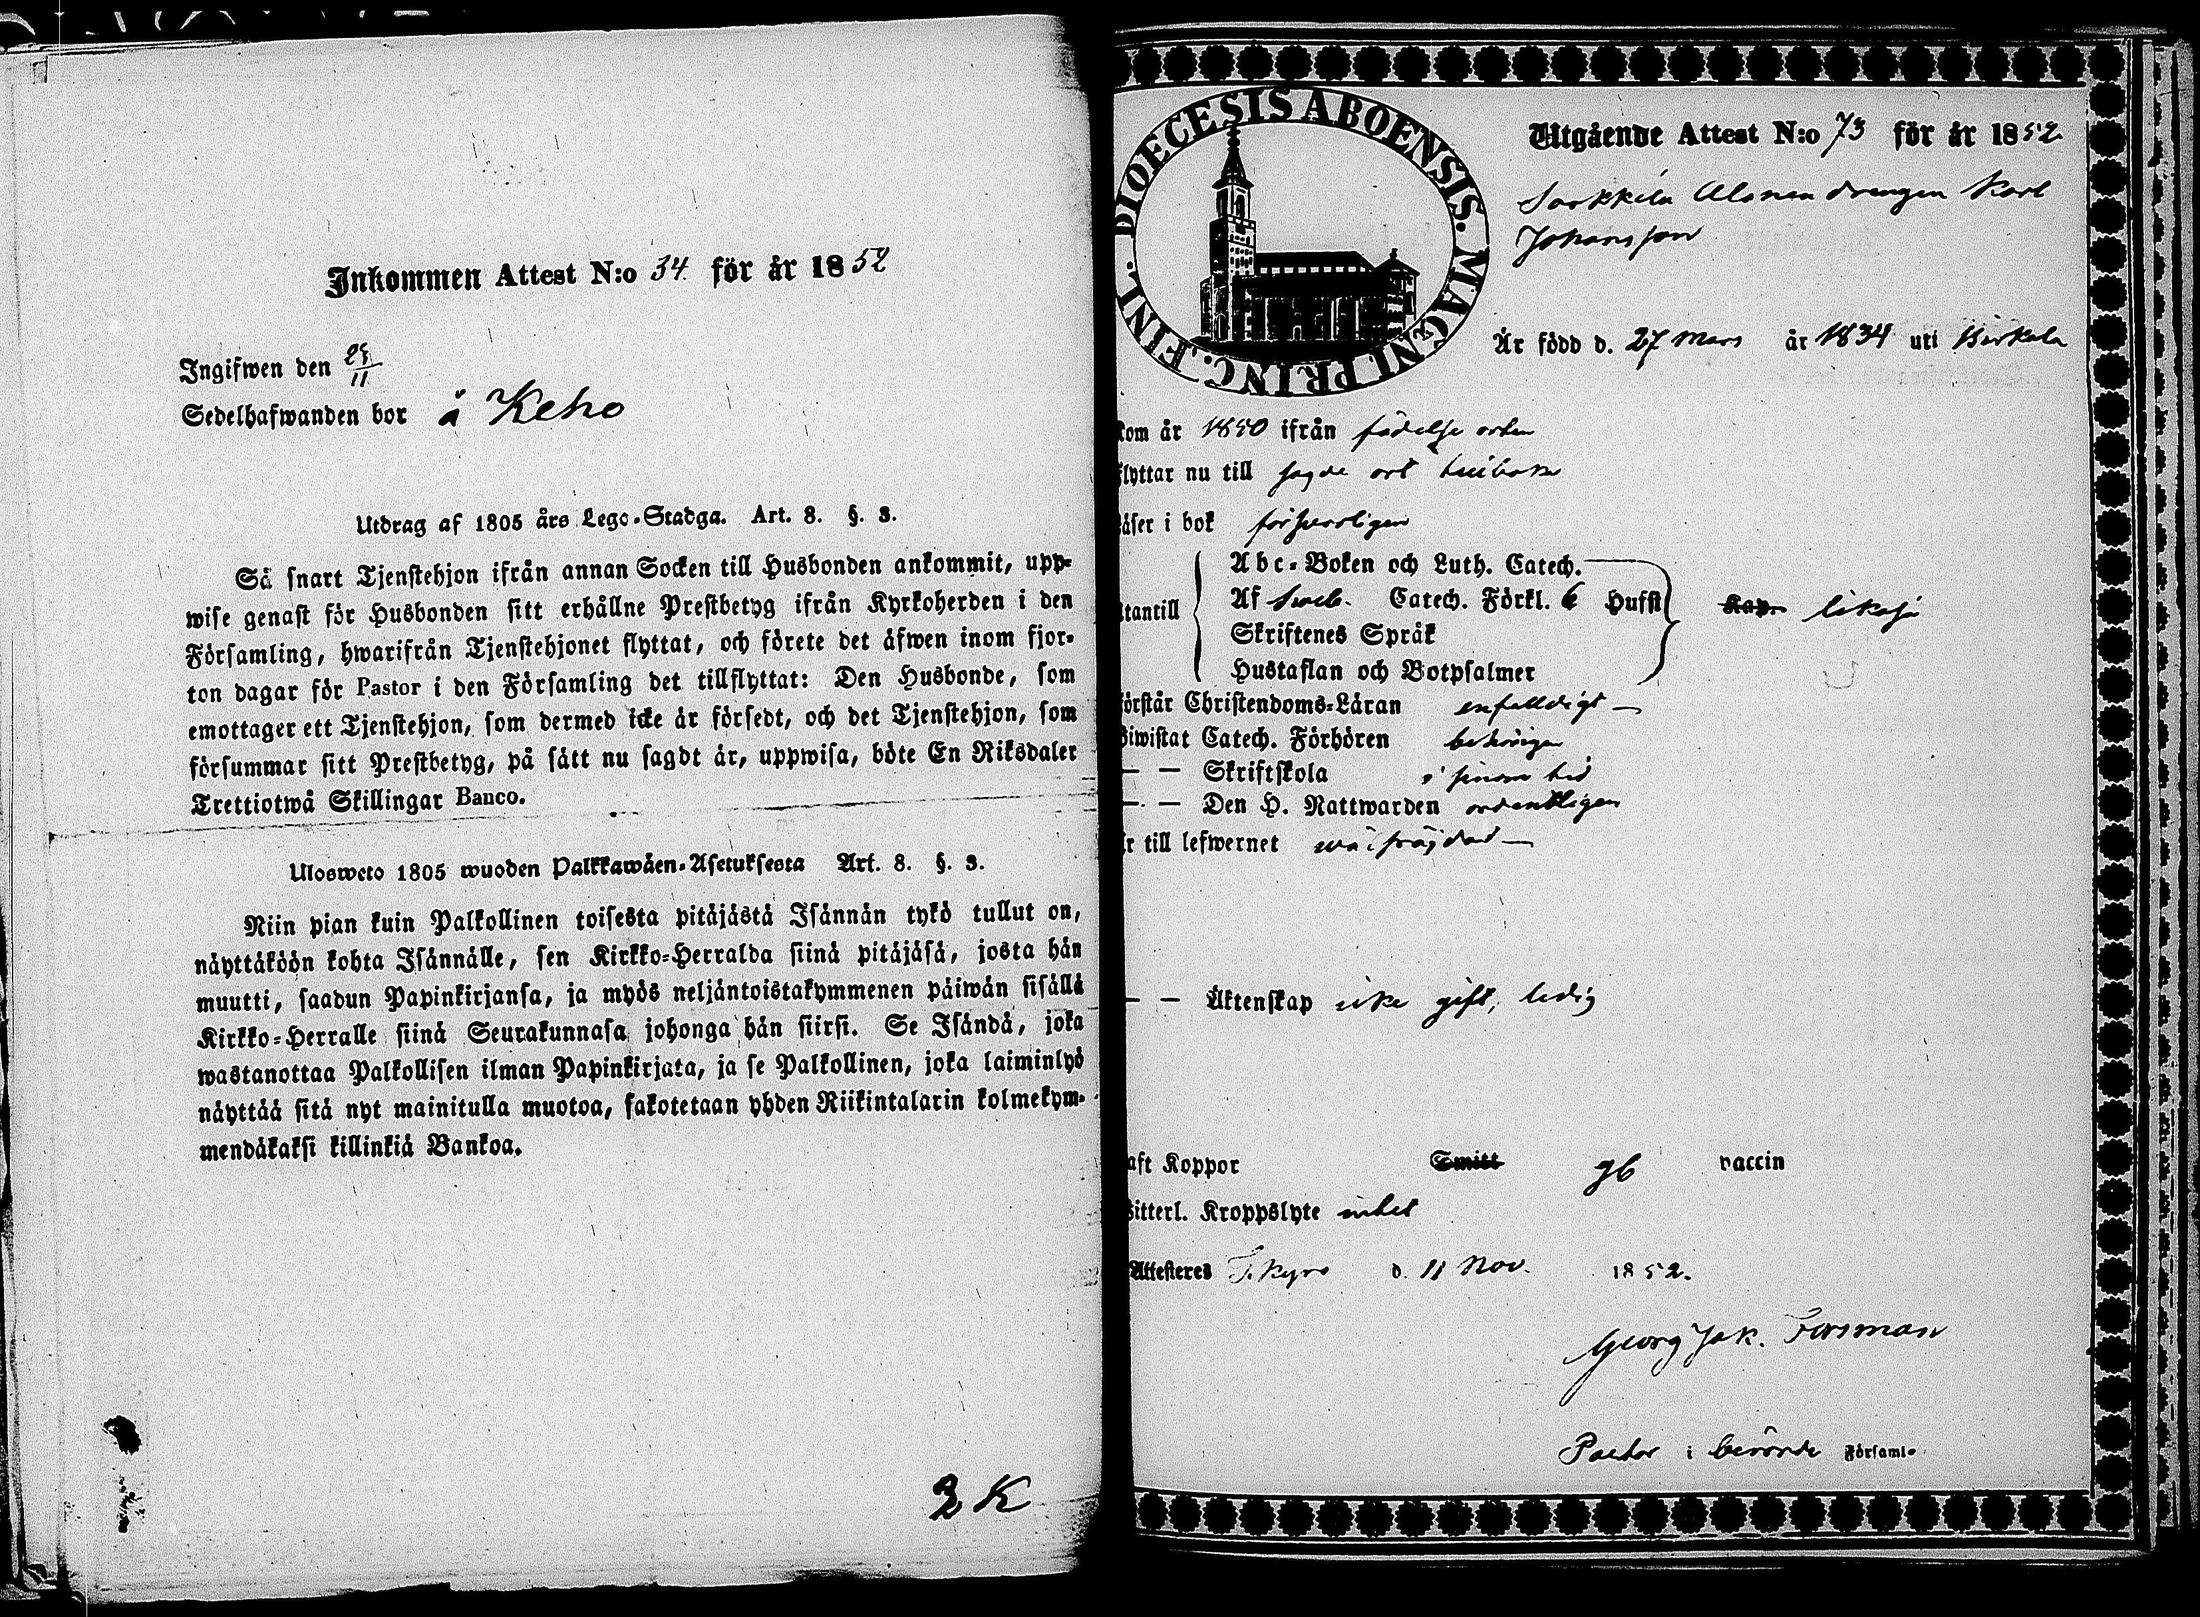 Inkommen Attest N:o 34 för år 1852
Ingifwen den 25/11
Sedelhafwanden bor å Keho
Utdrag af 1805 års Lego-Stadga. Art. 8. §. 3.
Så snart Tjenstehjon ifrån annan Socken till Husbonden ankommit, upp-
wise genast för Husbonden sitt erhållne Prestbetyg ifrån Kyrkoherden i den
Församling, hwarifrån Tjenstehjonet flyttat, och förete det äfwen inom fjor-
ton dagar för Pastor i den Församling det tillflyttat: Den Husbonde, som
emottager ett Tjenstehjon, som dermed icke är försedt, och det Tjenstehjon, som
försummar sitt Prestbetyg, på sätt nu sagdt är, uppwisa, böte En Riksdaler
Trettiotwå Skillingar Banco.
Ulosweto 1805 wuoden Palkkawäen-Asetuksesta Art. 8. §. 3.
Niin pian kuin Palkollinen toisesta pitäjästä Isännän tykö tullut on,
näyttäköön kohta Isännälle, sen Kirkko-Herralda siinä pitäjäsä, josta hän
muutti, saadun Papinkirjansa, ja myös neljäntoistakymmenen päiwän sisällä
Kirkko-Herralle siinä Seurakunnasa johonga hän siirsi. Se Isändä, joka
wastanottaa Palkollisen ilman Papinkirjata, ja se Palkollinen, joka laiminlyö
näyttää sitä nyt mainitulla muotoa, sakotetaan yhden Riikintalarin kolmekym-
mendäkaksi killinkiä Bankoa.
2 K
DIOECESIS ABOENSIS. MAGNI PRINC. FINL.
Utgående Attest N:o 73 för år 1852
Sarkkila drengen Karl
Johansson
Är född d. 27 Mars år 1834 uti Birkala
kom år 1850 ifrån födelse orten
flyttar nu till sagde ort tillbaka
läser i bok försvarligen
utantill
Abc-Boken och Luth. Catech.
Af Sveb. Catech. Förkl. 6 Hufst
Skriftenes Språk
Hustaflan och Botpsalmer
Kap. likaså
förstår Christendoms-Läran enfaldigt
Biwistat Catech. Förhören behörigen
— — Skriftskola i sinom tid
— — Den H. Nattwarden ordentligen
är till lefwernet wälfräjdad
— — Äktenskap icke gift, ledig
haft Koppor Smitt gb vaccin
Witterl. Kroppslyte intet
Attesteres T.kyro d. 11 Nov. 1852.
Georg Jak. Forsman
Pastor i berörde Församl-